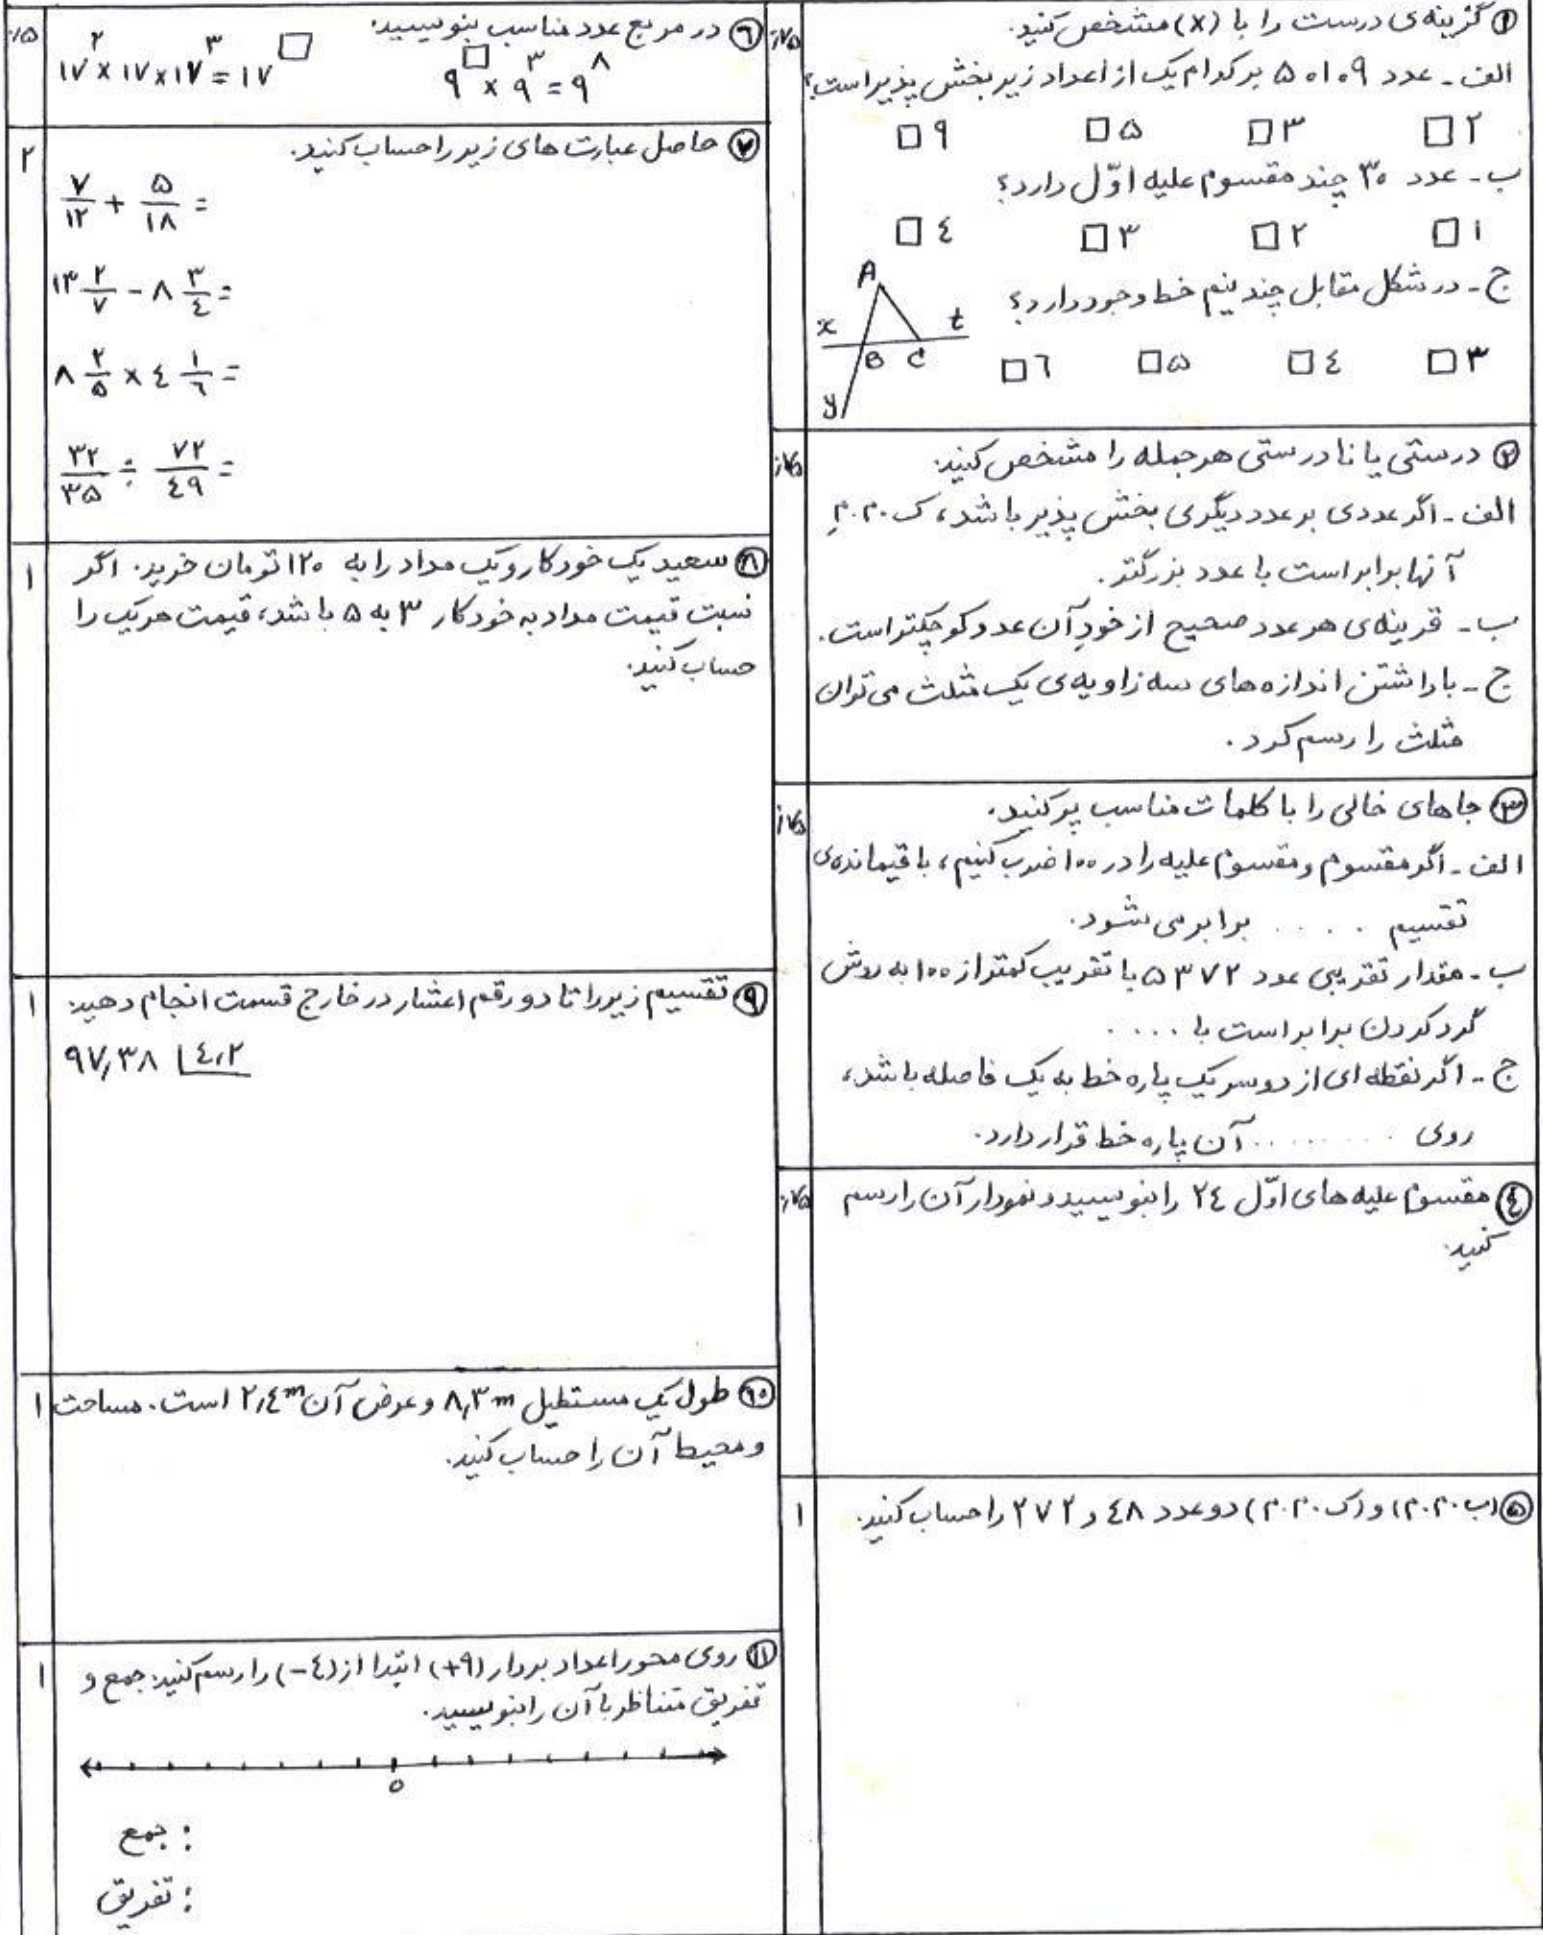 ۰/۷۵
① گزینه‌ی درست را با (x) مشخص کنید.
الف - عدد ۵۰۱۰۹ بر کدام یک از اعداد زیر بخش پذیر است؟
□ ۲ □ ۳ □ ۵ □ ۹
ب - عدد ۳۰ چند مقسوم علیه اوّل دارد؟
□ ۱ □ ۲ □ ۳ □ ٤
ج - در شکل مقابل چند نیم خط وجود دارد؟
A
x B C t
y
□ ۳ □ ٤ □ ۵ □ ٦
۰/۷۵
② درستی یا نادرستی هر جمله را مشخص کنید:
الف - اگر عددی بر عدد دیگری بخش پذیر باشد، ک.م.م
آنها برابر است با عدد بزرگتر.
ب - قرینه‌ی هر عدد صحیح از خودِ آن عدد کوچکتر است.
ج - با داشتن اندازه های سه زاویه‌ی یک مثلث می توان
مثلث را رسم کرد.
۰/۷۵
③ جاهای خالی را با کلمات مناسب پر کنید.
الف - اگر مقسوم و مقسوم علیه را در ۱۰۰ ضرب کنیم، باقیمانده‌ی
تقسیم .... برابر می شود.
ب - مقدار تقریبی عدد ۵۳۷۲ با تقریب کمتر از ۱۰۰ به روش
گرد کردن برابر است با ....
ج - اگر نقطه ای از دو سر یک پاره خط به یک فاصله باشد،
روی ......... آن پاره خط قرار دارد.
۰/۷۵
④ مقسوم علیه های اوّل ۲٤ را بنویسید و نمودار آن را رسم
کنید.
۱
⑤ (ب.م.م) و (ک.م.م) دو عدد ٤۸ و ۲۷۲ را حساب کنید.
۰/۵
⑥ در مربع عدد مناسب بنویسید:
۱۷² × ۱۷ × ۱۷³ = ۱۷□
۹□ × ۹³ = ۹⁸
۲
⑦ حاصل عبارت های زیر را حساب کنید.
۷/۱۲ + ۵/۱۸ =
۱۳ ۲/۷ - ۸ ۳/٤ =
۸ ۲/۵ × ٤ ۱/٦ =
۳۲/۳۵ ÷ ۷۲/٤۹ =
۱
⑧ سعید یک خودکار و یک مداد را به ۱۲۰ تومان خرید. اگر
نسبت قیمت مداد به خودکار ۳ به ۵ باشد، قیمت هر یک را
حساب کنید.
۱
⑨ تقسیم زیر را تا دو رقم اعشار در خارج قسمت انجام دهید:
۹۷٫۳۸ | ٤٫۲
۱
⑩ طول یک مستطیل ۸٫۳ m و عرض آن ۲٫٤ m است. مساحت
و محیط آن را حساب کنید.
۱
⑪ روی محور اعداد بردار (+۹) ابتدا از (-٤) را رسم کنید: جمع و
تفریق متناظر با آن را بنویسید.
۰
جمع :
تفریق :